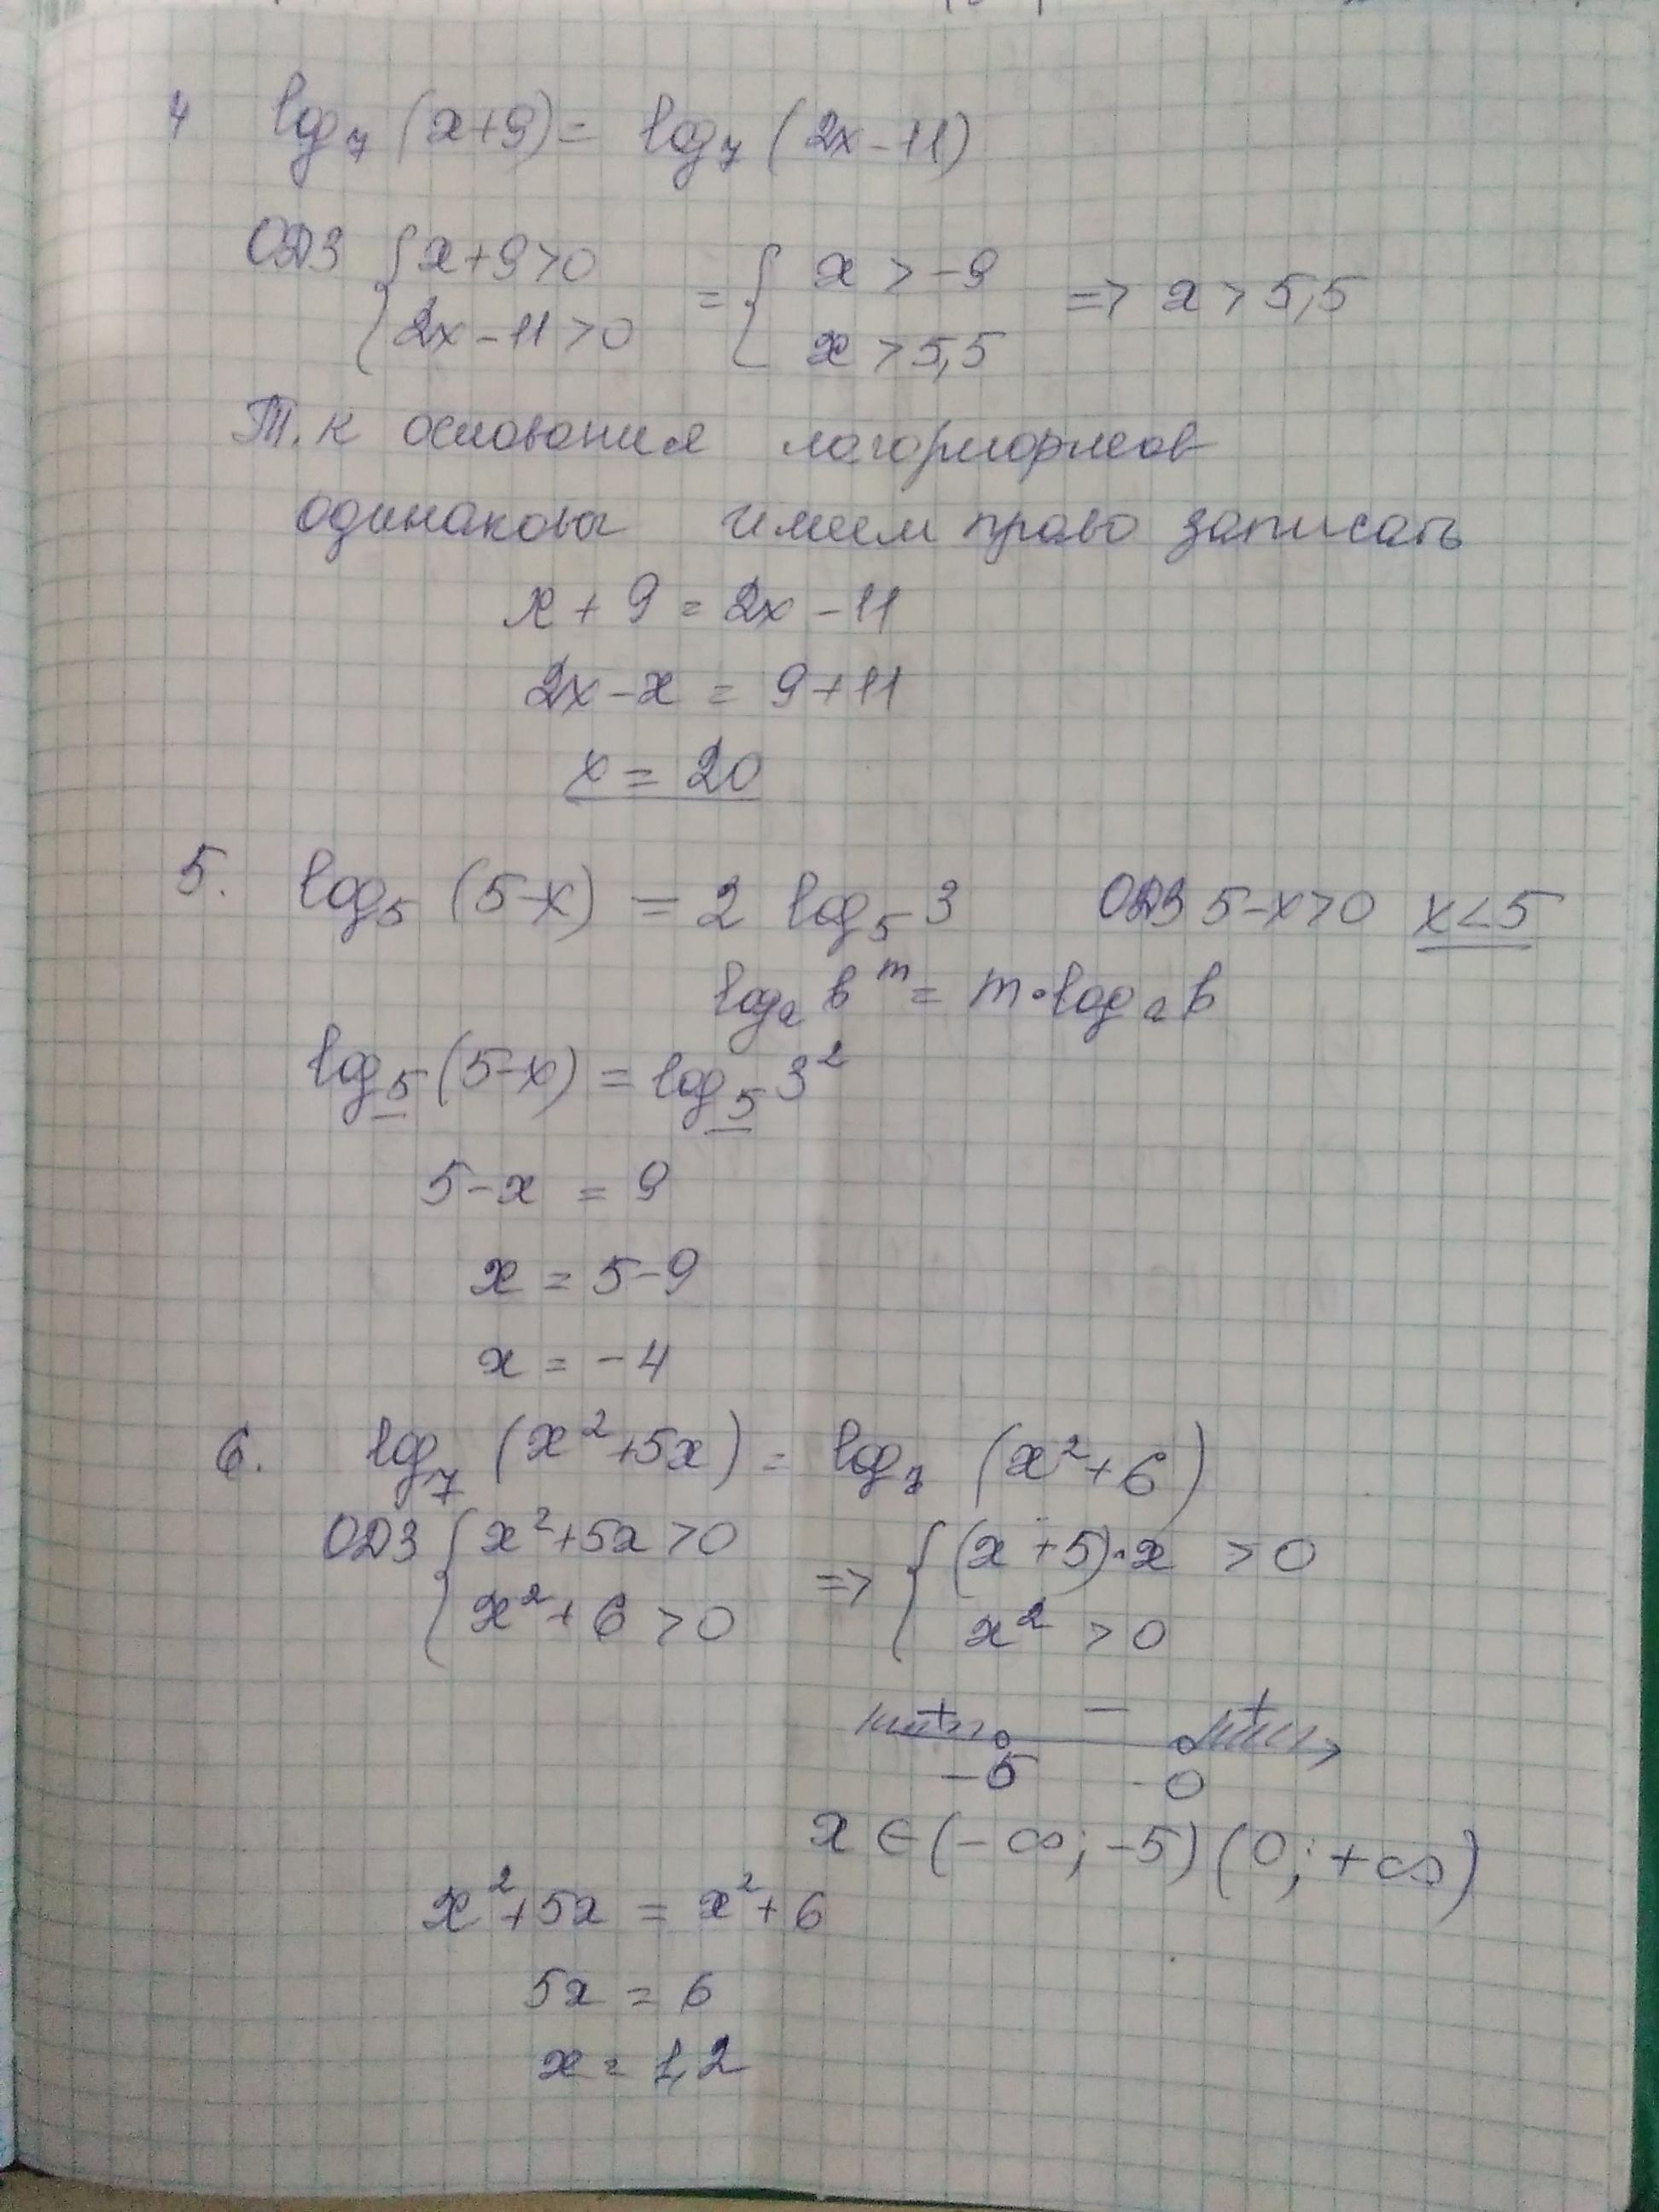 4 log₇ (x+9) = log₇ (2x-11)
ОДЗ { x+9>0 = { x > -9 => x > 5,5
2x-11>0 x > 5,5
Т.к основания логориорлеов
одинаковы имеем право записать
x + 9 = 2x - 11
2x - x = 9+11
x = 20
5. log₅ (5-x) = 2 log₅ 3 ОДЗ 5-x>0 x<5
logₐ bᵐ = m·logₐ b
log₅ (5-x) = log₅ 3²
5-x = 9
x = 5-9
x = -4
6. log₇ (x²+5x) = log₇ (x²+6)
ОДЗ { x²+5x>0 => { (x+5)·x > 0
x²+6 >0 x² > 0
+ - +
-5 0
x ∈ (-∞; -5) (0; +∞)
x²+5x = x²+6
5x = 6
x = 1,2